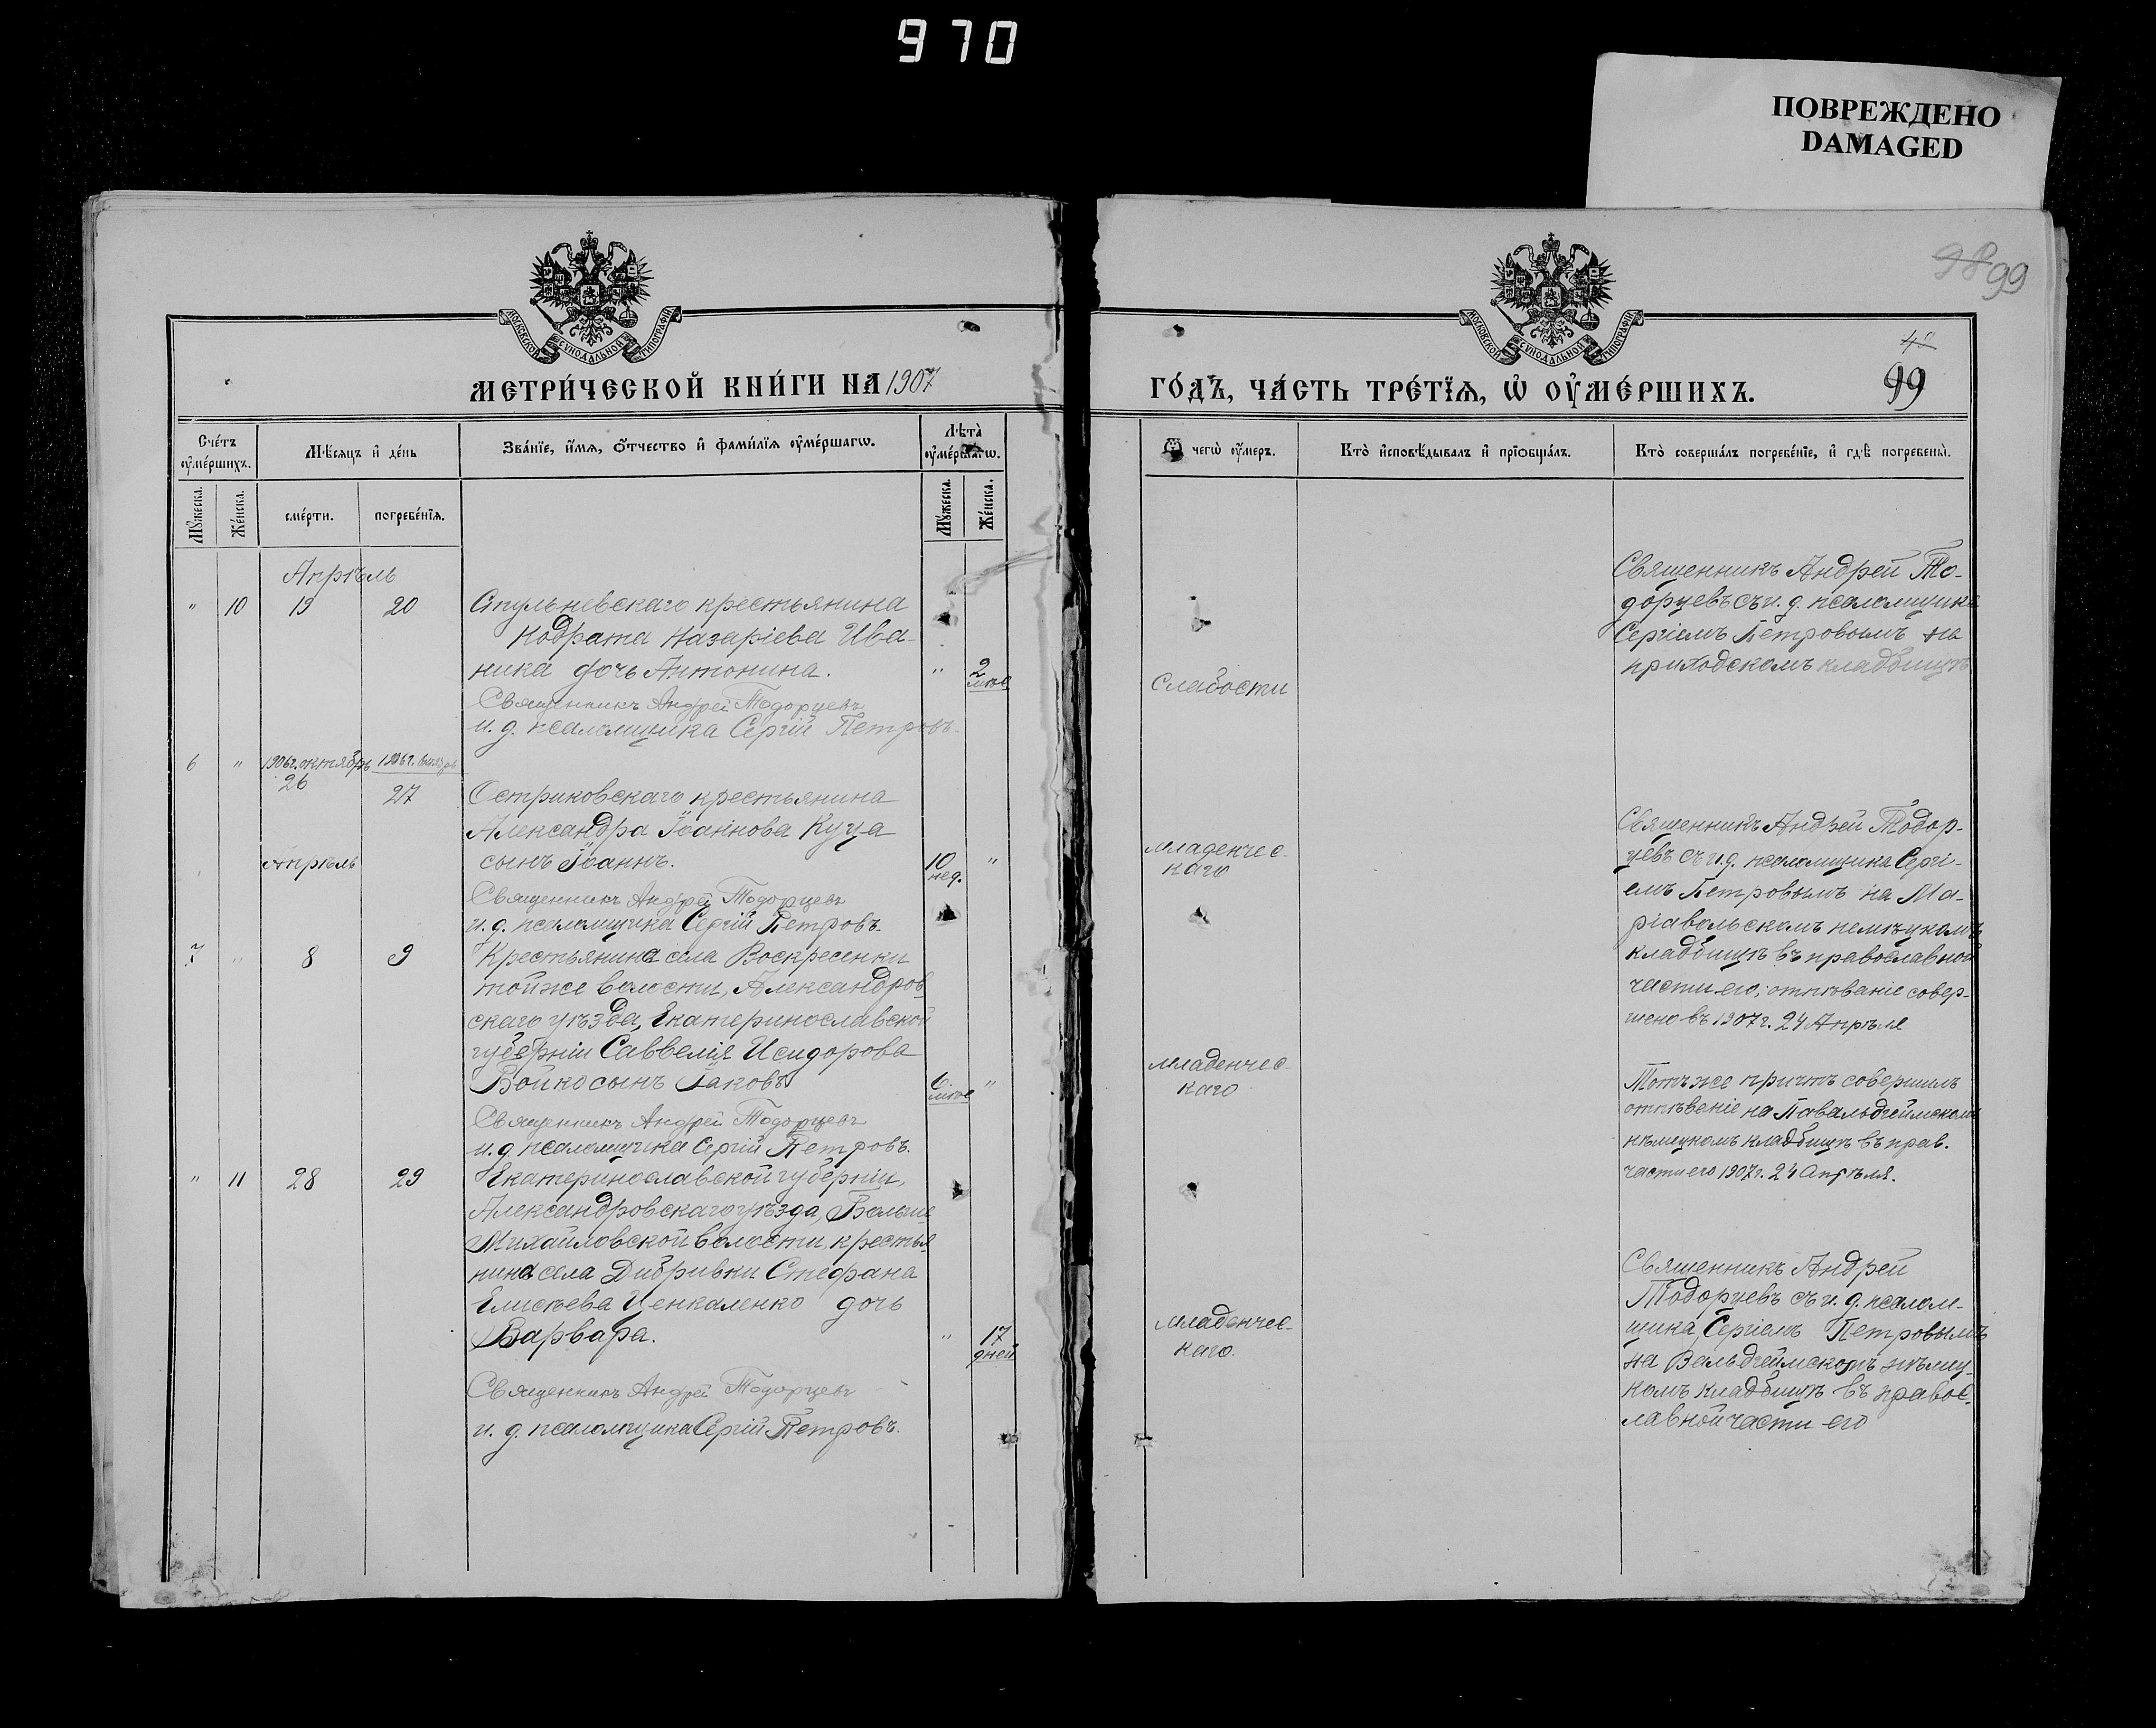 970
ПОВРЕЖДЕНО
DAMAGED
98 99
МОСКОВСКОЙ СѴНОДАЛЬНОЙ ТИПОГРАФІИ
МОСКОВСКОЙ СѴНОДАЛЬНОЙ ТИПОГРАФІИ
99
МЕТРИ́ЧЕСКОЙ КНИ́ГИ НА 1907
ГО́ДЪ, ЧА́СТЬ ТРЕ́ТЇѦ, Ѡ҆ ОУ҆МЕ́РШИХЪ.
Сче́тъ оу҆ме́ршихъ.
Мѣ́сяцъ и҆ де́нь
Зва́нїе, и҆́мѧ, о҆́тчество и҆ фами́лїѧ оу҆ме́ршагѡ.
Лѣ́та оу҆ме́ршагѡ.
Ѿ чегѡ̀ оу҆́меръ.
Кто̀ и҆сповѣ́дывалъ и҆ прїѡбща́лъ.
Кто̀ соверша́лъ погребе́нїе, и҆ гдѣ̀ погребены̀.
Мꙋ́жеска.
Же́нска.
сме́рти.
погребе́нїѧ.
Мꙋ́жеска.
Же́нска.
Апрѣль
" 10 19 20
Стульневскаго крестьянина
Кодрата Назаріева Ива-
ника дочь Антонина.
" 2 мѣс
Священникъ Андрей Тодорцевъ
и. д. псаломщика Сергій Петровъ.
Слабости
Священникъ Андрей То-
дорцевъ съ и. д. псаломщика
Сергіемъ Петровымъ на
приходскомъ кладбищѣ
6 " 1906 г. октябрь 26
1906 г. 27
Остриковскаго крестьянина
Александра Іоаннова Куца
сынъ Іоаннъ.
10 нед. "
Священникъ Андрей Тодорцевъ
и. д. псаломщика Сергій Петровъ.
младенчес-
каго
Священникъ Андрей Тодор-
цевъ съ и. д. псаломщика Сергі-
емъ Петровымъ на Ма-
ріавольскомъ немѣцкомъ
кладбищѣ въ православной
части его; отпѣваніе совер-
шено въ 1907 г. 24 Апрѣля
Апрѣль
7 " 8 9
Крестьянина села Воскресенки
тойже волости, Александров
скаго уѣзда, Екатеринославской
губерніи Саввелія Исидорова
Бойко сынъ Іаковъ
6 мѣс "
Священникъ Андрей Тодорцевъ
и. д. псаломщика Сергій Петровъ.
младенчес-
каго
Тотъ же причтъ совершилъ
отпѣвеніе на Павальдгеймскомъ
нѣмецкомъ кладбищѣ въ прав.
части его 1907 г. 24 Апрѣля.
" 11 28 29
Екатеринославской губерніи,
Александровскаго уѣзда, Больше
Михайловской волости, крестья
нина села Дибривки Стефана
Елисѣева Ценкаленко дочь
Варвара.
" 17 дней
Священникъ Андрей Тодорцевъ
и. д. псаломщика Сергій Петровъ.
младенчес-
каго.
Священникъ Андрей
Тодорцевъ съ и. д. псалом-
щика Сергіемъ Петровымъ
на Вальдгеймскомъ нѣмец-
комъ кладбищѣ въ правос-
лавной части его